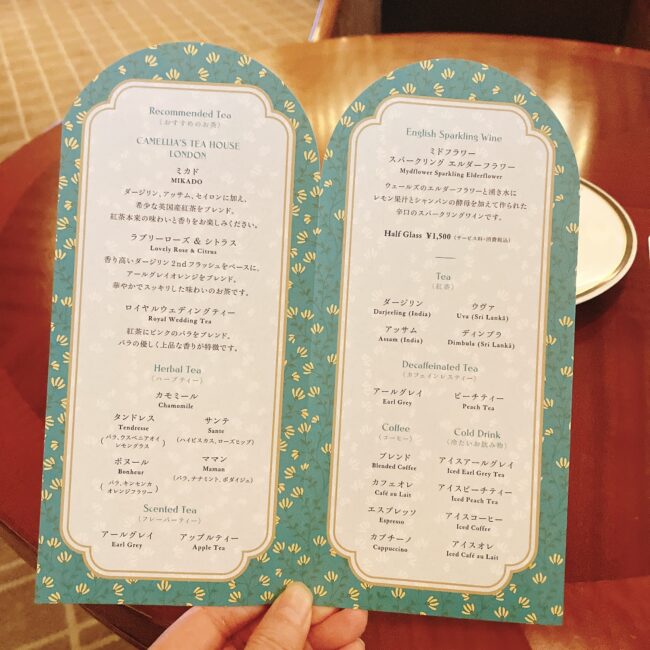 Recommended Tea
(おすすめのお茶)
CAMELLIA'S TEA HOUSE
LONDON
ミカド
MIKADO
ダージリン、アッサム、セイロンに加え、
希少な英国産紅茶をブレンド。
紅茶本来の味わいと香りをお楽しみください。
ラブリーローズ & シトラス
Lovely Rose & Citrus
香り高いダージリン 2nd フラッシュをベースに、
アールグレイオレンジをブレンド。
華やかでスッキリした味わいのお茶です。
ロイヤルウェディングティー
Royal Wedding Tea
紅茶にピンクのバラをブレンド。
バラの優しく上品な香りが特徴です。
Herbal Tea
(ハーブティー)
カモミール
Chamomile
タンドレス
Tendresse
(バラ、ウスベニアオイ
レモングラス)
サンテ
Sante
(ハイビスカス、ローズヒップ)
ボヌール
Bonheur
(バラ、キンモンカ
オレンジフラワー)
ママン
Maman
(バラ、ナナミント、ボダイジュ)
Scented Tea
(フレーバーティー)
アールグレイ
Earl Grey
アップルティー
Apple Tea
English Sparkling Wine
ミドフラワー
スパークリング エルダーフラワー
Mydflower Sparkling Elderflower
ウェールズのエルダーフラワーと湧き水に
レモン果汁とシャンパンの酵母を加えて作られた
辛口のスパークリングワインです。
Half Glass ¥1,500 (サービス料・消費税込)
Tea
(紅茶)
ダージリン
Darjeeling (India)
ウヴァ
Uva (Sri Lankā)
アッサム
Assam (India)
ディンブラ
Dimbula (Sri Lankā)
Decaffeinated Tea
(カフェインレスティー)
アールグレイ
Earl Grey
ピーチティー
Peach Tea
Coffee
(コーヒー)
ブレンド
Blended Coffee
カフェオレ
Café au Lait
エスプレッソ
Espresso
カプチーノ
Cappuccino
Cold Drink
(冷たいお飲み物)
アイスアールグレイ
Iced Earl Grey Tea
アイスピーチティー
Iced Peach Tea
アイスコーヒー
Iced Coffee
アイスオレ
Iced Café au Lait